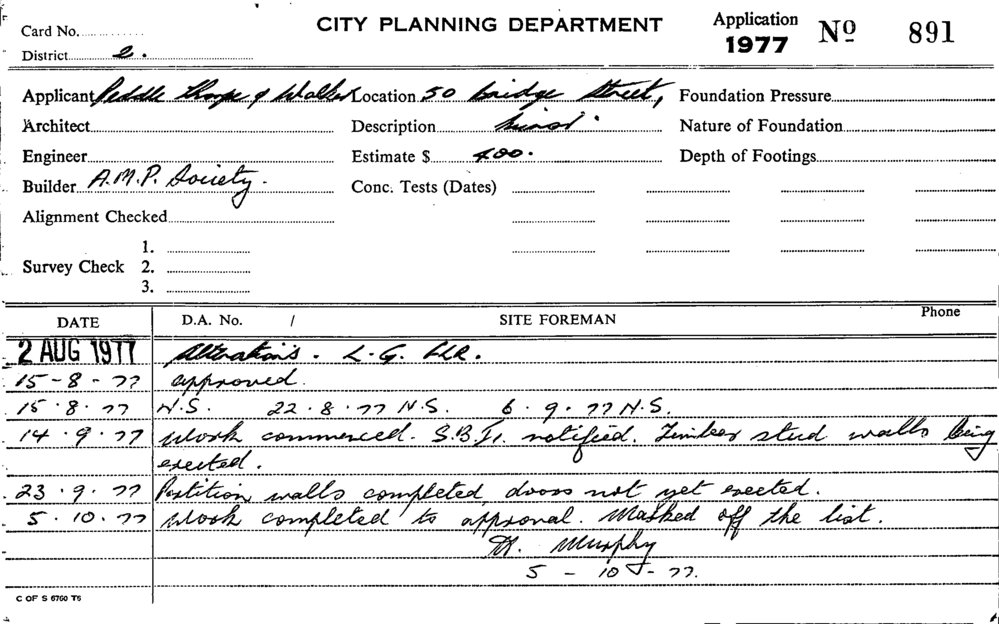 CITY PLANNING DEPARTMENT
Application 1977 Nº 891
Card No.
District 2.
Applicant Peddle Thorpe & Walker Location 50 Bridge Street, Foundation Pressure
Architect Description Minor. Nature of Foundation
Engineer Estimate $ 400. Depth of Footings
Builder A.M.P. Society. Conc. Tests (Dates)
Alignment Checked
Survey Check 1.
2.
3.
DATE D.A. No. / SITE FOREMAN Phone
2 AUG 1977 Alterations. L.G. FLR.
15-8-77 approved.
15.8.77 N.S. 22.8.77 N.S. 6.9.77 N.S.
14.9.77 Work commenced. S.B.I. notified. Timber stud walls being
erected.
23.9.77 Partition walls completed, doors not yet erected.
5.10.77 Work completed to approval. Marked off the list.
Murphy
5-10-77.
C OF S 6760 T6